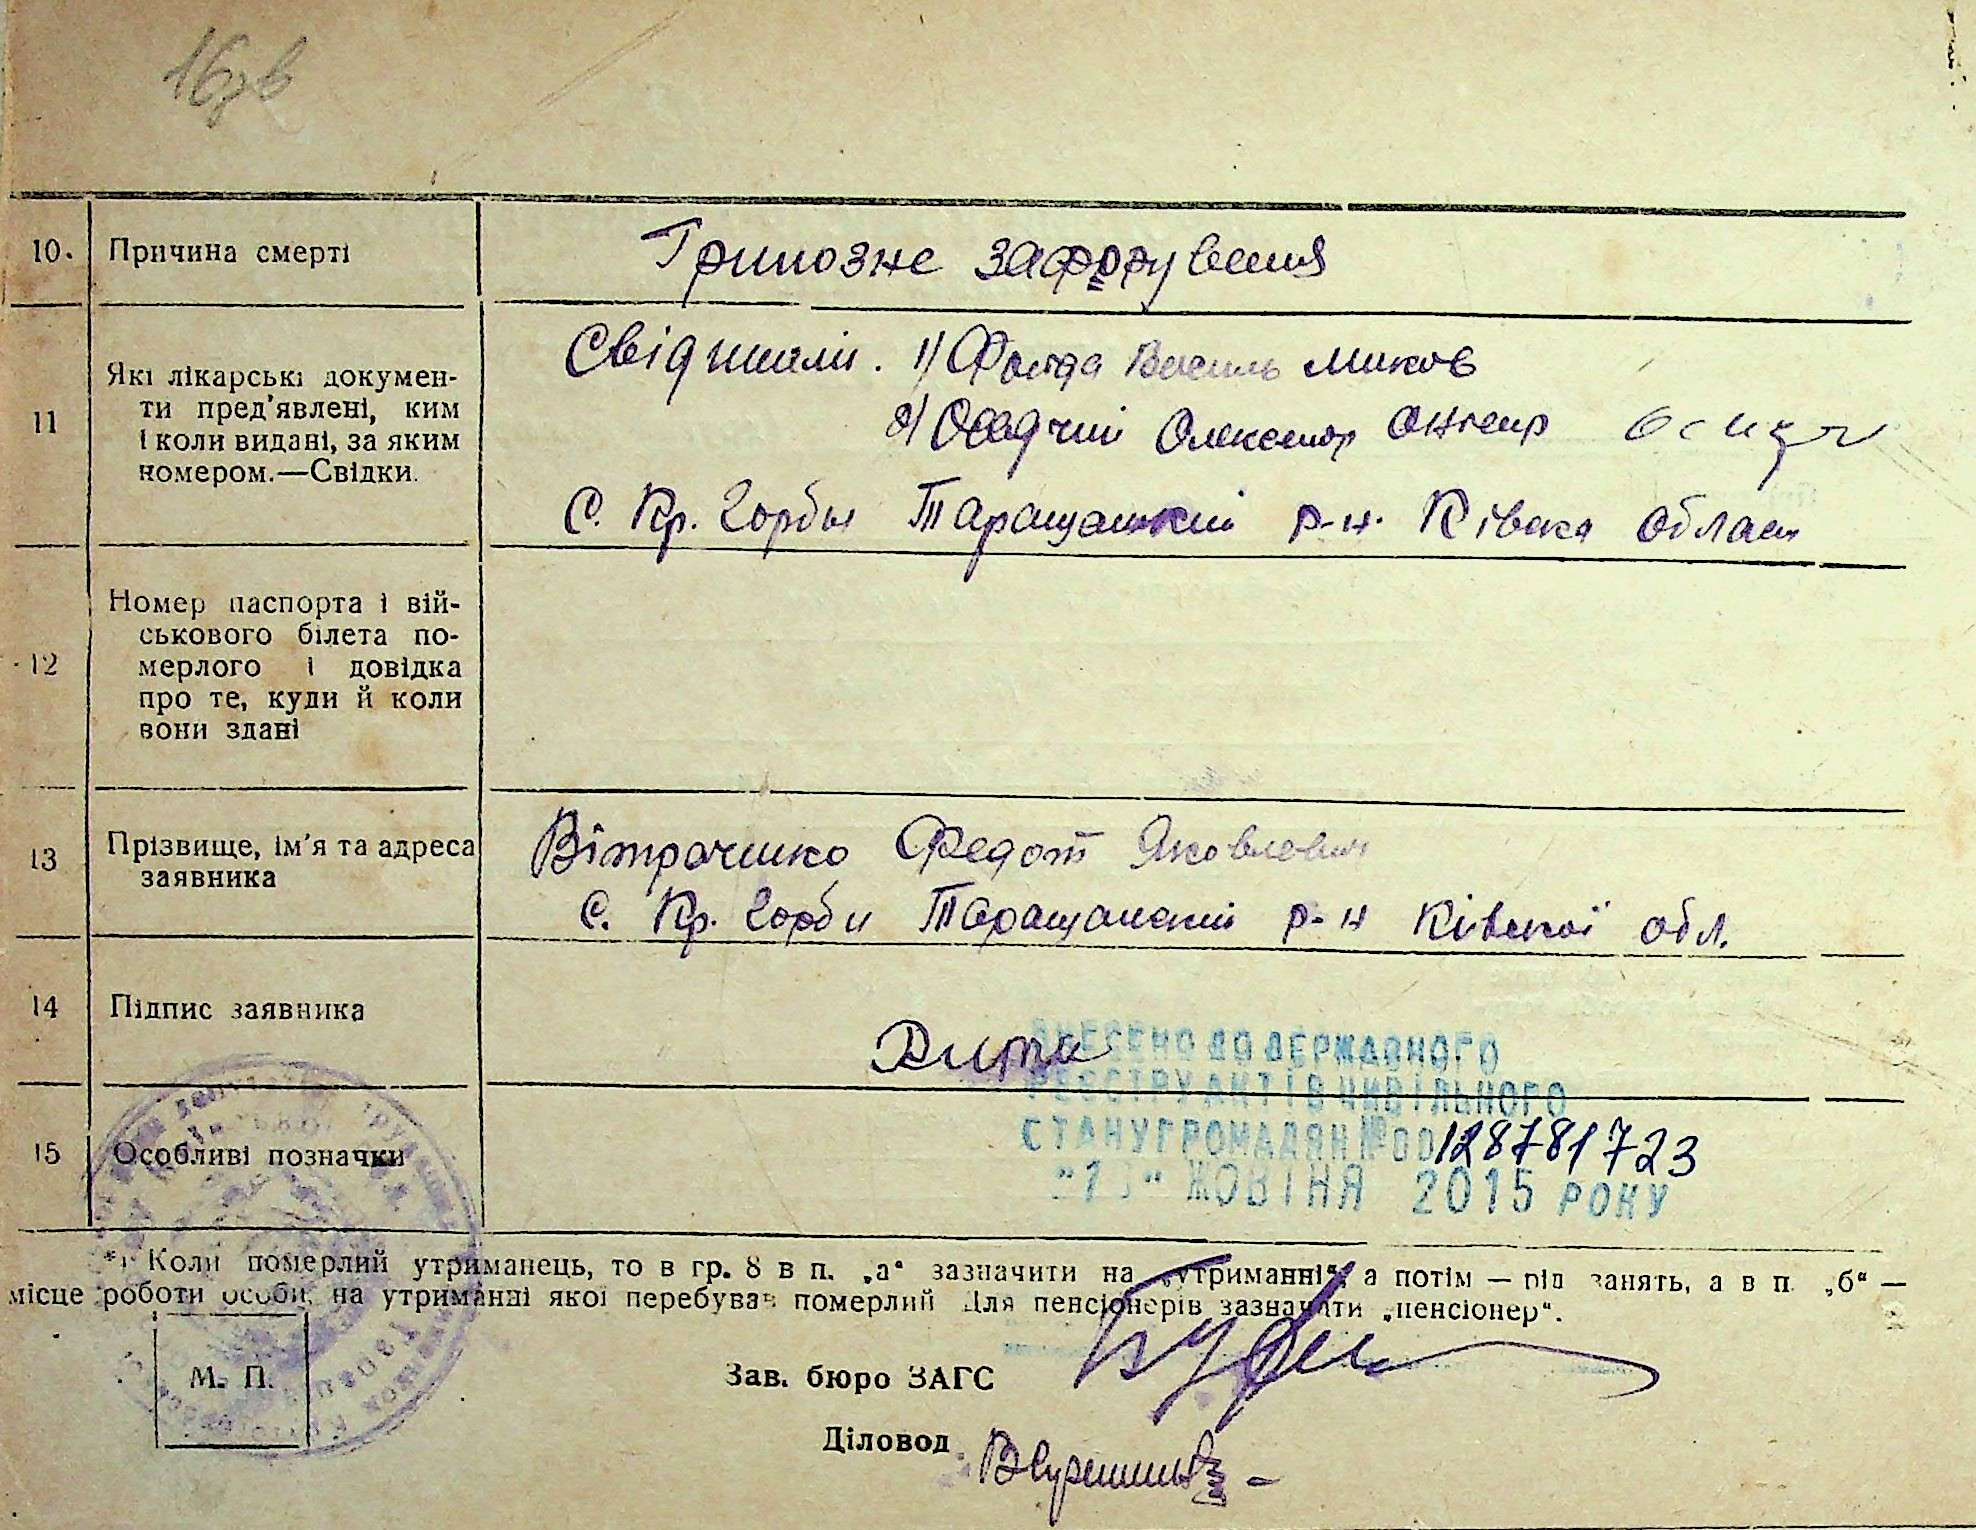 16зв
10. Причина смерті
Грипозне захорування
11 Які лікарські докумен-
ти пред'явлені, ким
і коли видані, за яким
номером.—Свідки.
Свідшили. 1) Василь Миков
2) Осадчий Олександр
С. Кр. Горбы Таращанский р-н. Ківска област
12 Номер паспорта і вій-
ськового білета по-
мерлого і довідка
про те, куди й коли
вони здані
13 Прізвище, ім'я та адреса
заявника
Вітраченко Федот Яковлевич
С. Кр. Горби Таращанский р-н Ківскої обл.
14 Підпис заявника
ВНЕСЕНО ДО ДЕРЖАВНОГО
РЕЄСТРУ АКТІВ ЦИВІЛЬНОГО
15 Особливі позначки
СТАНУ ГРОМАДЯН № 00128781723
ЖОВТНЯ 2015 РОКУ
*) Коли померлий утриманець, то в гр. 8 в п. „а“ зазначити на „утриманні“, а потім — рід занять, а в п. „б“ —
місце роботи особи, на утриманні якої перебував померлий. Для пенсіонерів зазначати „пенсіонер“.
М. П.
Зав. бюро ЗАГС
Діловод